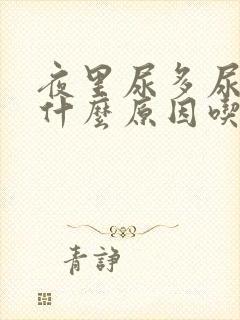 夜里尿多尿
什麼原因喫
青諍